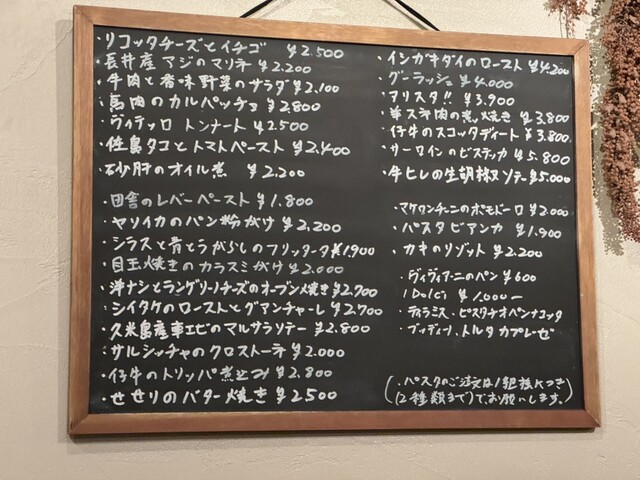 ・リコッタチーズとイチゴ ¥2.500
・長井産 アジのマリネ ¥2.200
・牛肉と香味野菜のサラダ ¥2,100
・馬肉のカルパッチョ ¥2800
・ヴィテッロ トンナート ¥2500
・佐島タコとトマトペースト ¥2.400
・砂肝のオイル煮 ¥2.200
・田舎のレバーペースト ¥1.800
・ヤリイカのパン粉がけ ¥2,200
・シラスと青とうがらしのフリッタータ ¥1,900
・目玉焼きのカラスミがけ ¥2.000
・洋ナシとランゲリーノチーズのオーブン焼き ¥2700
・シイタケのローストとグアンチャーレ ¥2.700
・久米島産車エビのマルサラソテー ¥2.800
・サルシッチャのクロストーネ ¥2.000
・仔牛のトリッパ煮込み ¥2.800
・せせりのバター焼き ¥2500
・インガキダイのロースト ¥4,200
・グーラッシュ ¥4.000
・アリスタ!! ¥3.900
・羊スネ肉の煮焼き ¥3.800
・仔牛のスコッタディート ¥3.800
・サーロインのビステッカ ¥5.800
・牛ヒレの生胡椒ソテー ¥5.000
・マケロンチーニのポモドーロ ¥2.000
・パスタビアンカ ¥1.900
・カキのリゾット ¥2.200
・ヴィヴィアーニのパン ¥600
・Dolci ¥1.000ー
・ティラミス・ピスタチオパンナコッタ
・ブディーノ、トルタカプレーゼ
(・パスタのご注文は1組様につき
(2種類まで)でお願いします。)